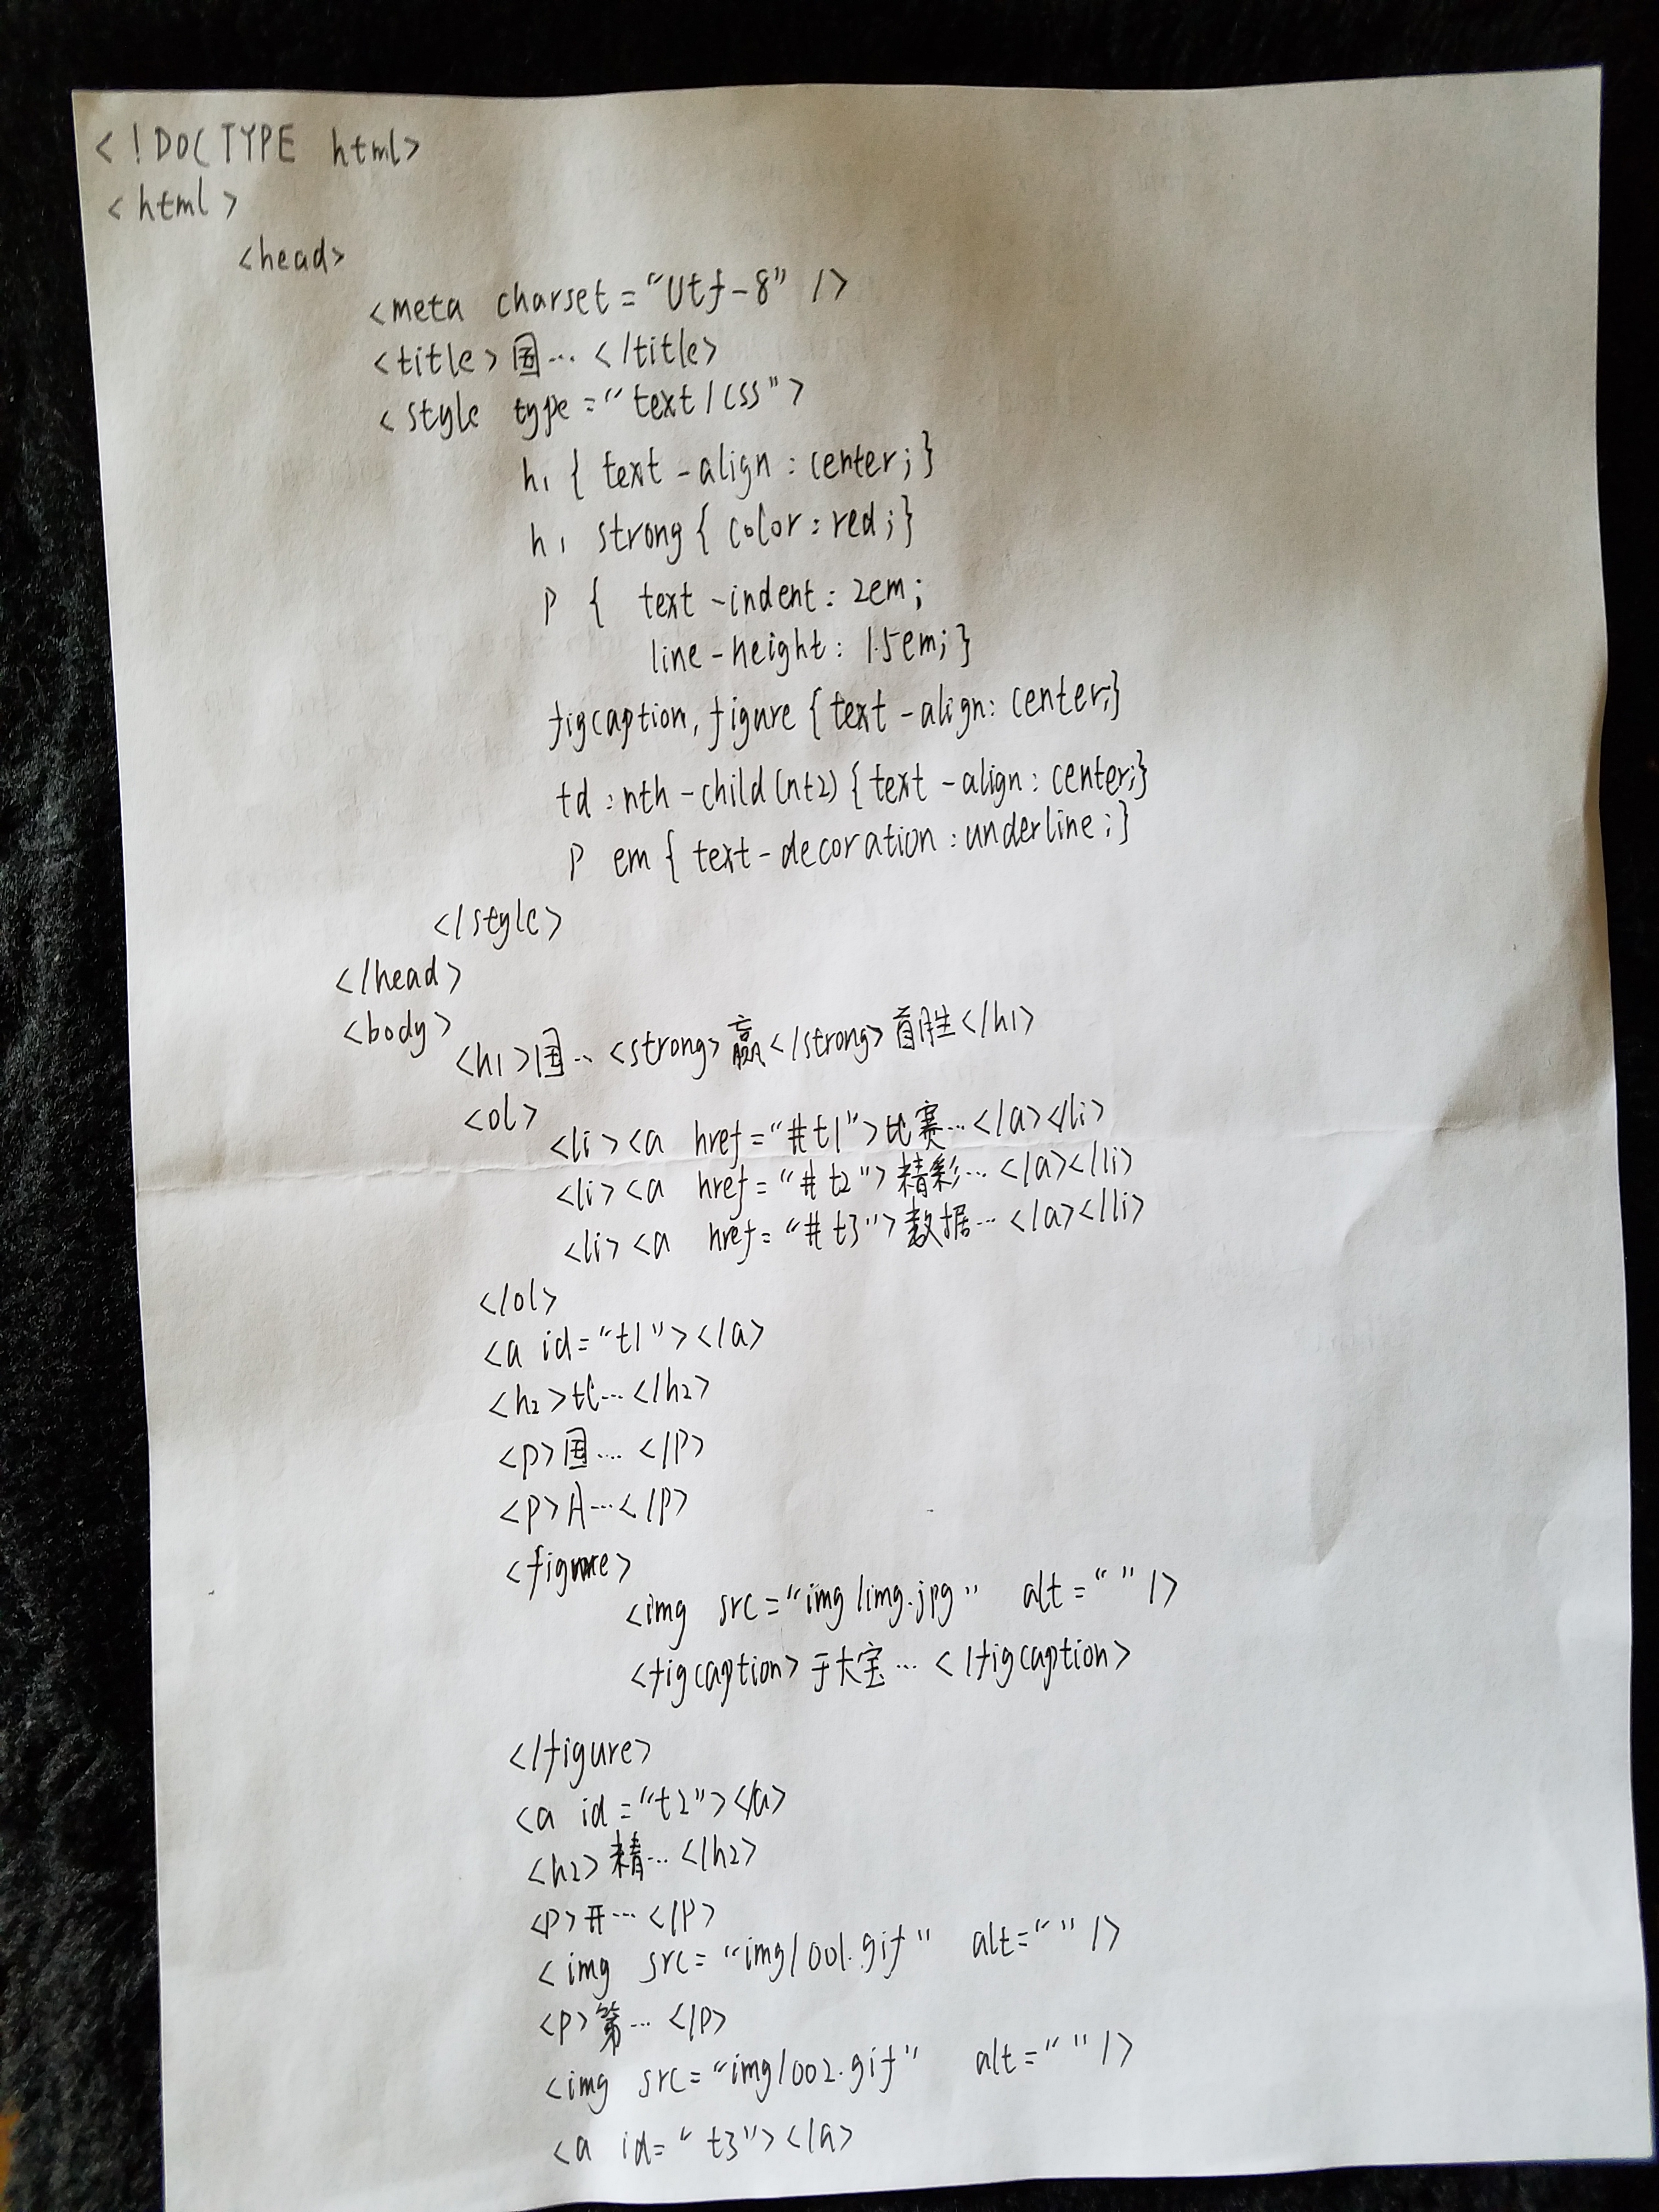 <!DOCTYPE html>
<html>
<head>
<meta charset="Utf-8" />
<title>国…</title>
<style type="text/css">
h1 { text-align : center; }
h1 strong { color : red; }
p { text-indent : 2em;
line-height : 1.5em; }
figcaption, figure { text-align : center; }
td : nth-child(n+2) { text-align : center; }
p em { text-decoration : underline; }
</style>
</head>
<body>
<h1>国…<strong>赢</strong>首胜</h1>
<ol>
<li><a href="#t1">比赛…</a></li>
<li><a href="#t2">精彩…</a></li>
<li><a href="#t3">数据…</a></li>
</ol>
<a id="t1"></a>
<h2>比…</h2>
<p>国…</p>
<p>A…</p>
<figure>
<img src="img/img.jpg" alt="" />
<figcaption>于大宝…</figcaption>
</figure>
<a id="t2"></a>
<h2>精…</h2>
<p>开…</p>
<img src="img/001.gif" alt="" />
<p>第…</p>
<img src="img/002.gif" alt="" />
<a id="t3"></a>